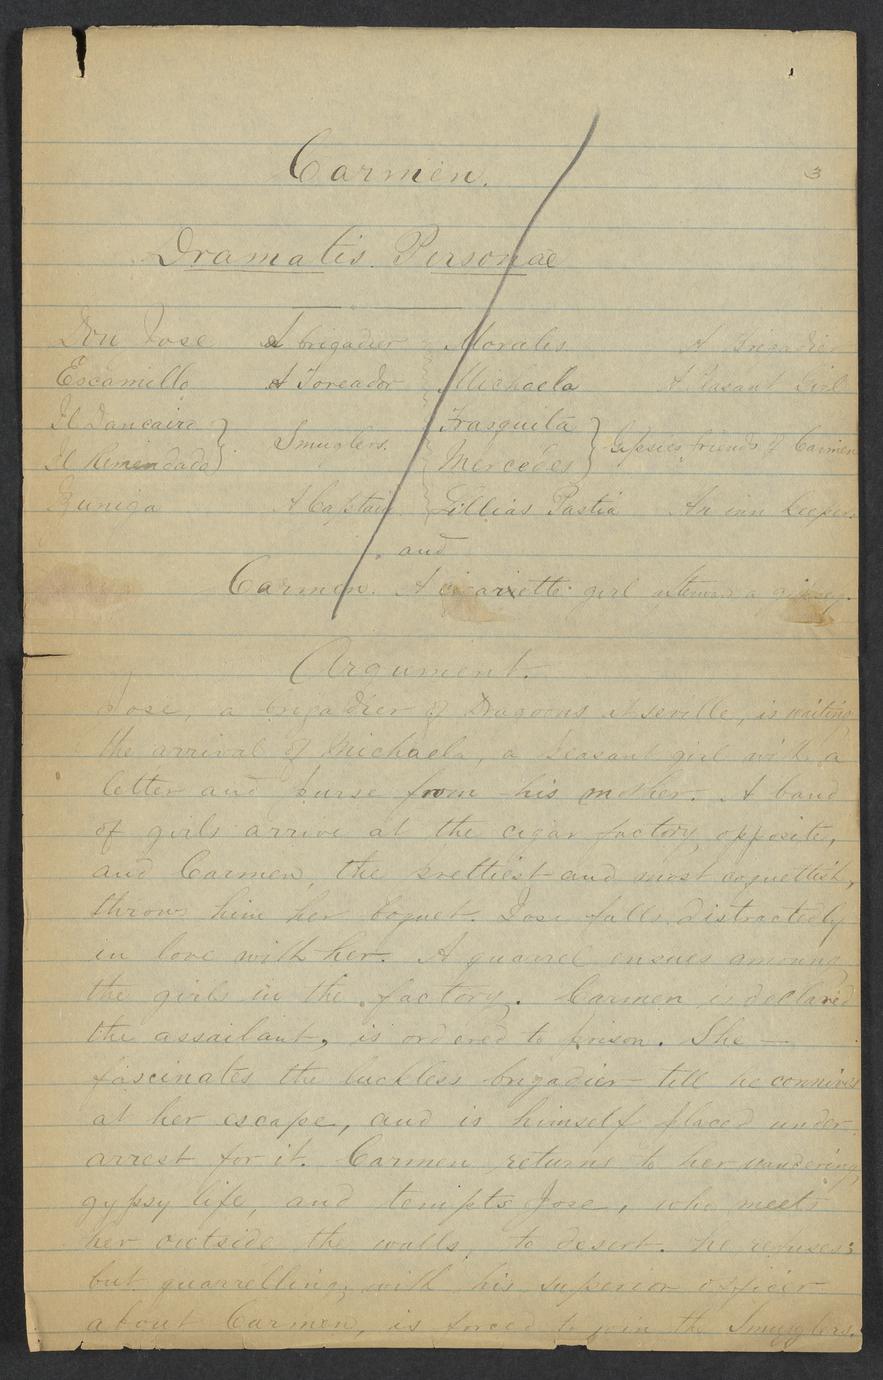 Carmen.
3
Dramatis Personae
Don Jose A brigadier Morales A Brigadier
Escamillo A Toreador Michaela A Peasant Girl
Il Dancairo } Smuglers. Frasquita } Gipsies friends of Carmen
Il Remendado Mercedes
Zuniga A Captain Lillias Pastia An inn keeper
and
Carmen. A cigarette girl afterward a gipsey.
Argument.
Jose, a brigadier of Dragoons at Seville, is waiting
the arrival of Michaela, a peasant girl with a
letter and purse from his mother. A band
of girls arrive at the cigar factory opposite,
and Carmen, the prettiest and most coquettish,
throws him her boquet. Jose falls distractedly
in love with her. A quarrel ensues among
the girls in the factory. Carmen is declared
the assailant, is ordered to prison. She —
fascinates the luckless brigadier till he connives
at her escape, and is himself placed under
arrest for it. Carmen returns to her wandering
gypsy life, and tempts Jose, who meets
her outside the walls, to desert. he refuses;
but quarrelling, with his superior officer
about Carmen, is forced to join the Smugglers.